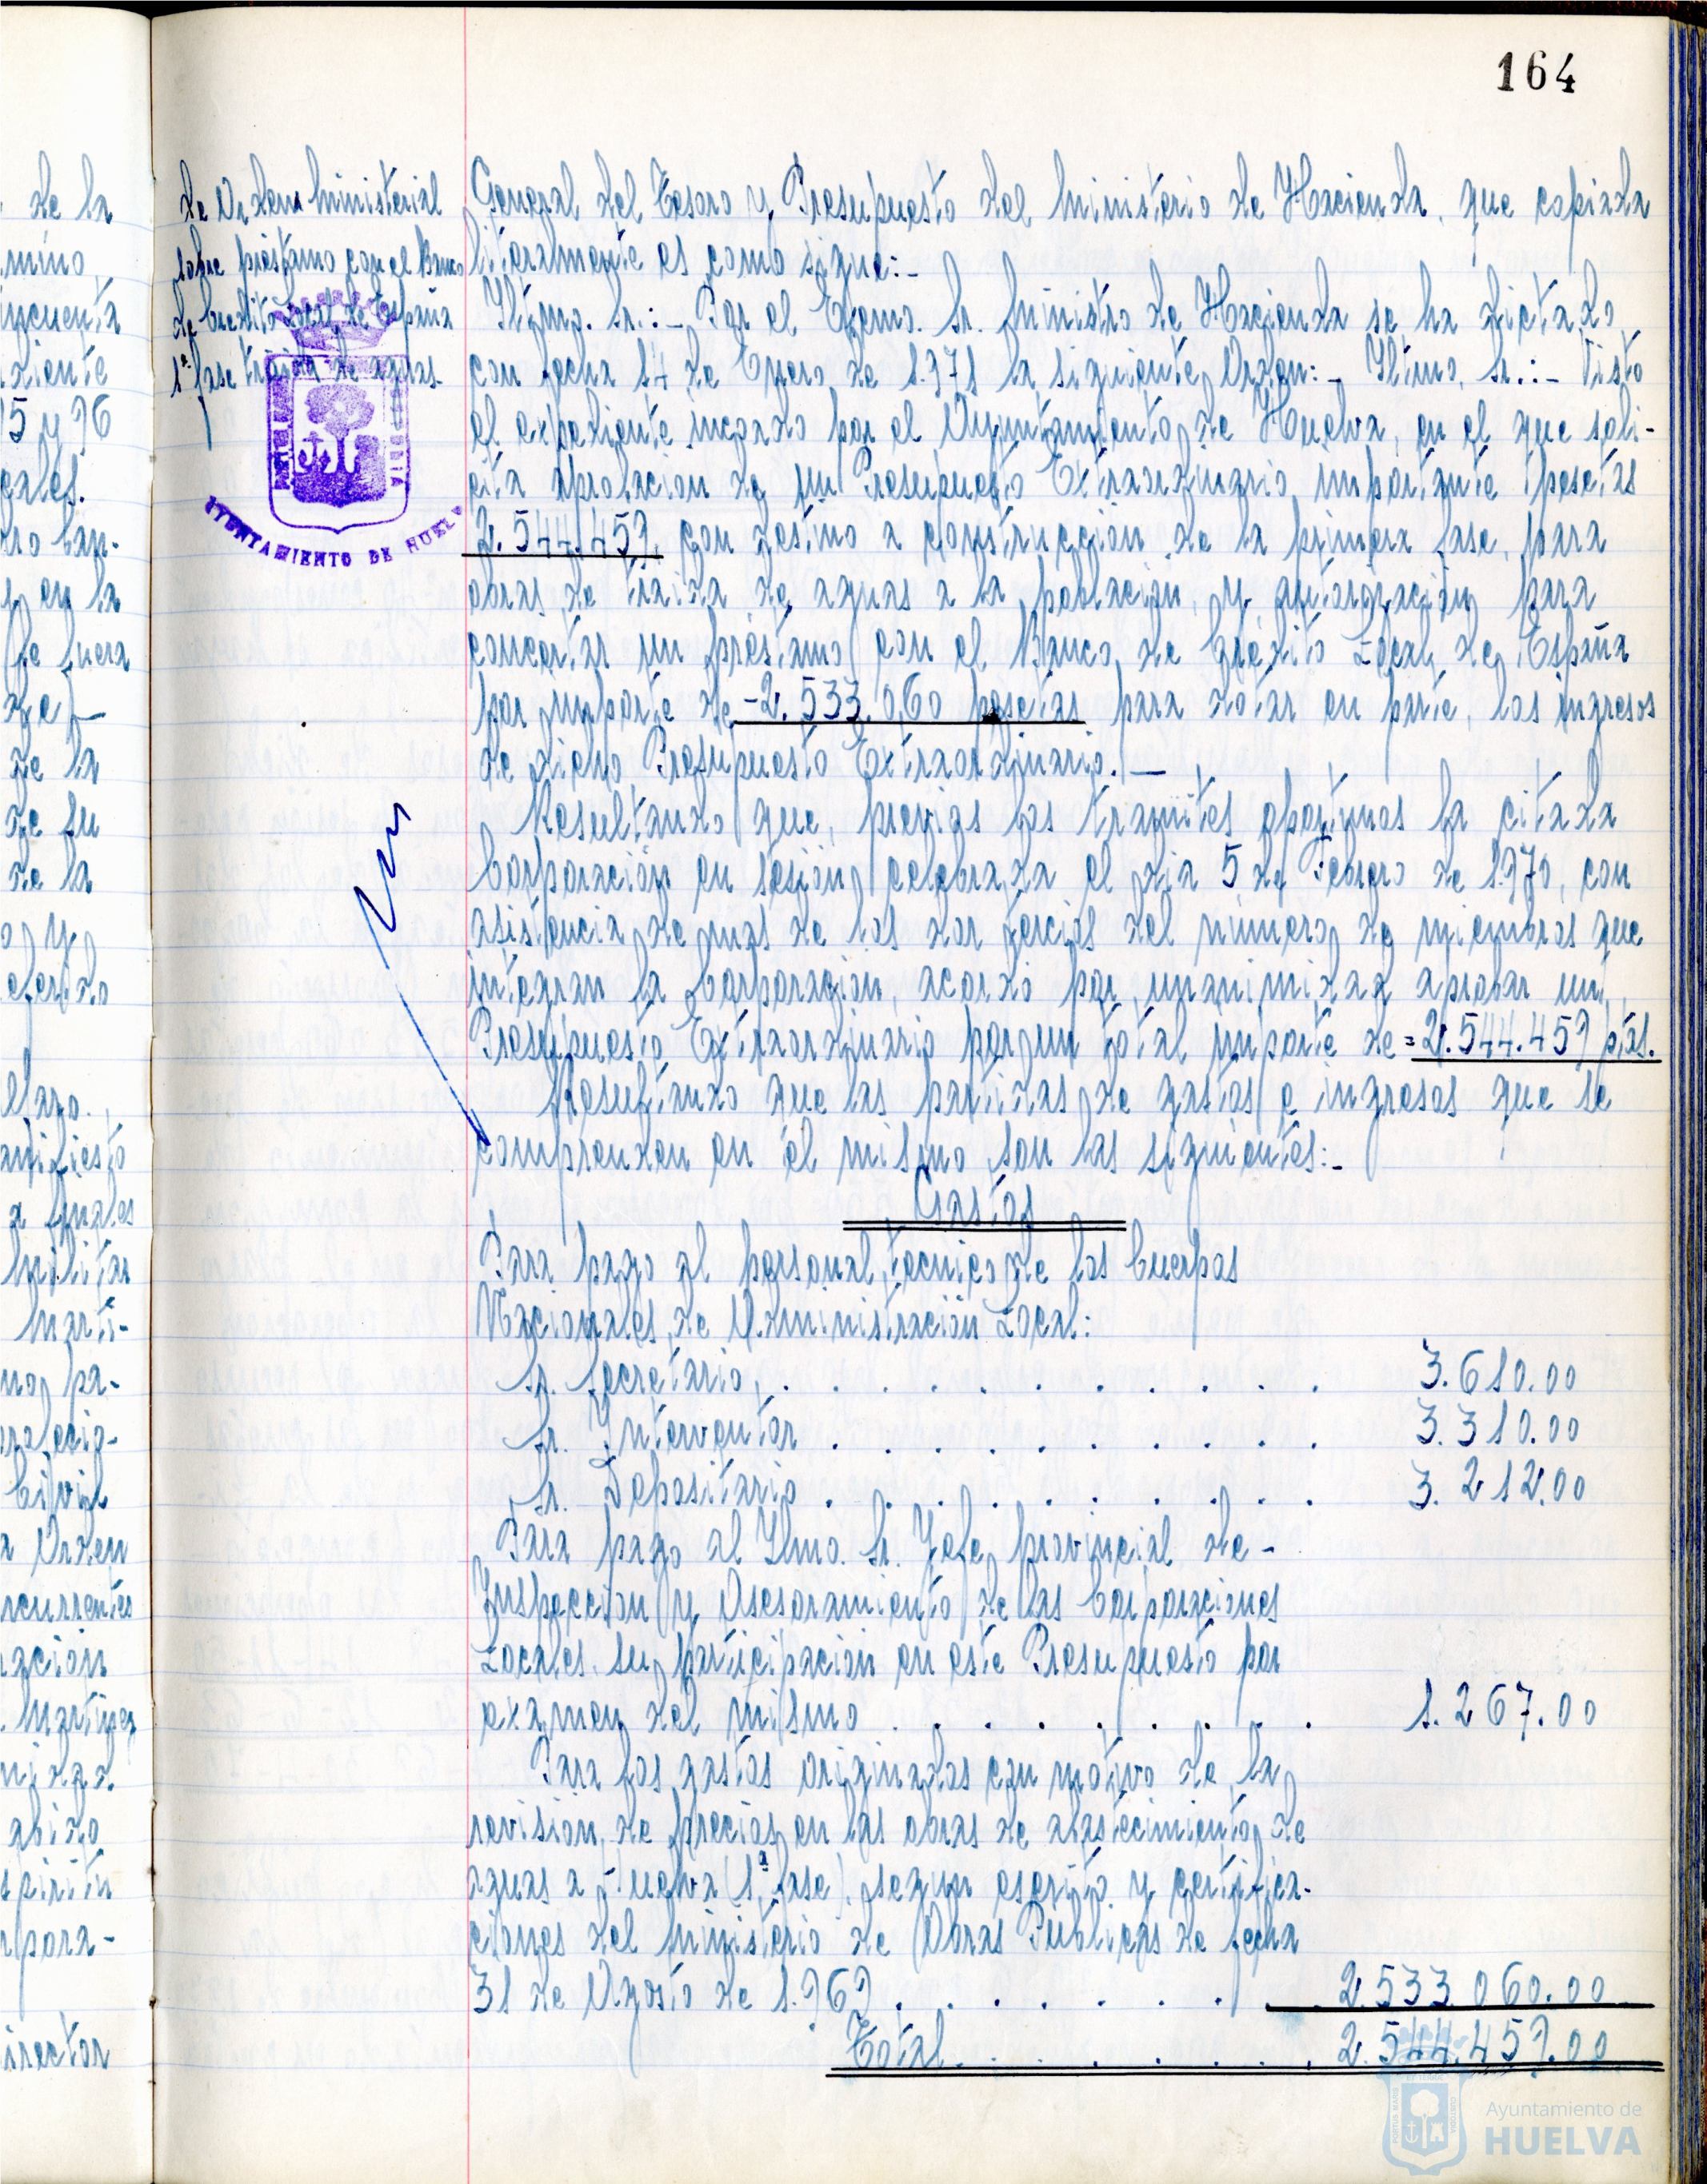 164
de la
mino,
incuenta
diente
75 y 76
cales.
ro Ban-
y en la
fe fuera
de la
de su
de la
o y
eferido
lazo.
anifiesto
a fines
Militar
Marti-
no pa-
Civil
Orden
ncurrentes
ación
Martinez
nidad.
abido
spiritu
rpora-
irector
de Orden Ministerial
sobre préstamo con el Banco
de Credito Local de España
1ª fase traida de aguas.
AYUNTAMIENTO DE HUELVA
General del Tesoro y Presupuesto del Ministerio de Hacienda, que copiada
literalmente es como sigue:-
Iltmo. Sr.:- Por el Excmo. Sr. Ministro de Hacienda se ha dictado
con fecha 14 de Enero de 1.971 la siguiente Orden:- Iltmo. Sr.:- Visto
el expediente incoado por el Ayuntamiento de Huelva, en el que soli-
cita aprobación de un Presupuesto Extraordinario, importante pesetas
2.544.459, con destino a construcción de la primera fase, para
obras de traida de aguas a la población, y autorización para
concertar un préstamo con el Banco de Crédito Local de España
por importe de -2.533.060 pesetas para dotar en parte, los ingresos
de dicho Presupuesto Extraordinario.-
Resultando que, previos los tramites oportunos la citada
Corporación en sesión celebrada el dia 5 de Febrero de 1.970, con
asistencia de mas de los dos tercios del número de miembros que
integran la Corporación, acordó por unanimidad aprobar un
Presupuesto Extraordinario por un total importe de= 2.544.459 ptas.
Resultando que las partidas de gastos e ingresos que se
comprenden en el mismo son las siguientes:-
Gastos
Para pago al personal técnico de los Cuerpos
Nacionales de Administración Local:
Sr. Secretario, . . . . . . . . . . . 3.610.00
Sr. Interventor . . . . . . . . . . 3.310.00
Sr. Depositario . . . . . . . . . . 3.212.00
Para pago al Ilmo. Sr. Jefe provincial de-
Inspección y Asesoramiento de las Corporaciones
Locales, su participación en este Presupuesto por
examen del mismo . . . . . . . . . 1.267.00
Para los gastos originados con motivo de la
revisión de precios en las obras de abastecimiento de
aguas a Huelva (1ª fase), segun escrito y certifica-
ciones del Ministerio de Obras Publicas de fecha
31 de Agosto de 1.969 . . . . . . . 2.533.060.00
Total . . . . . . . . 2.544.459.00
Ayuntamiento de
HUELVA